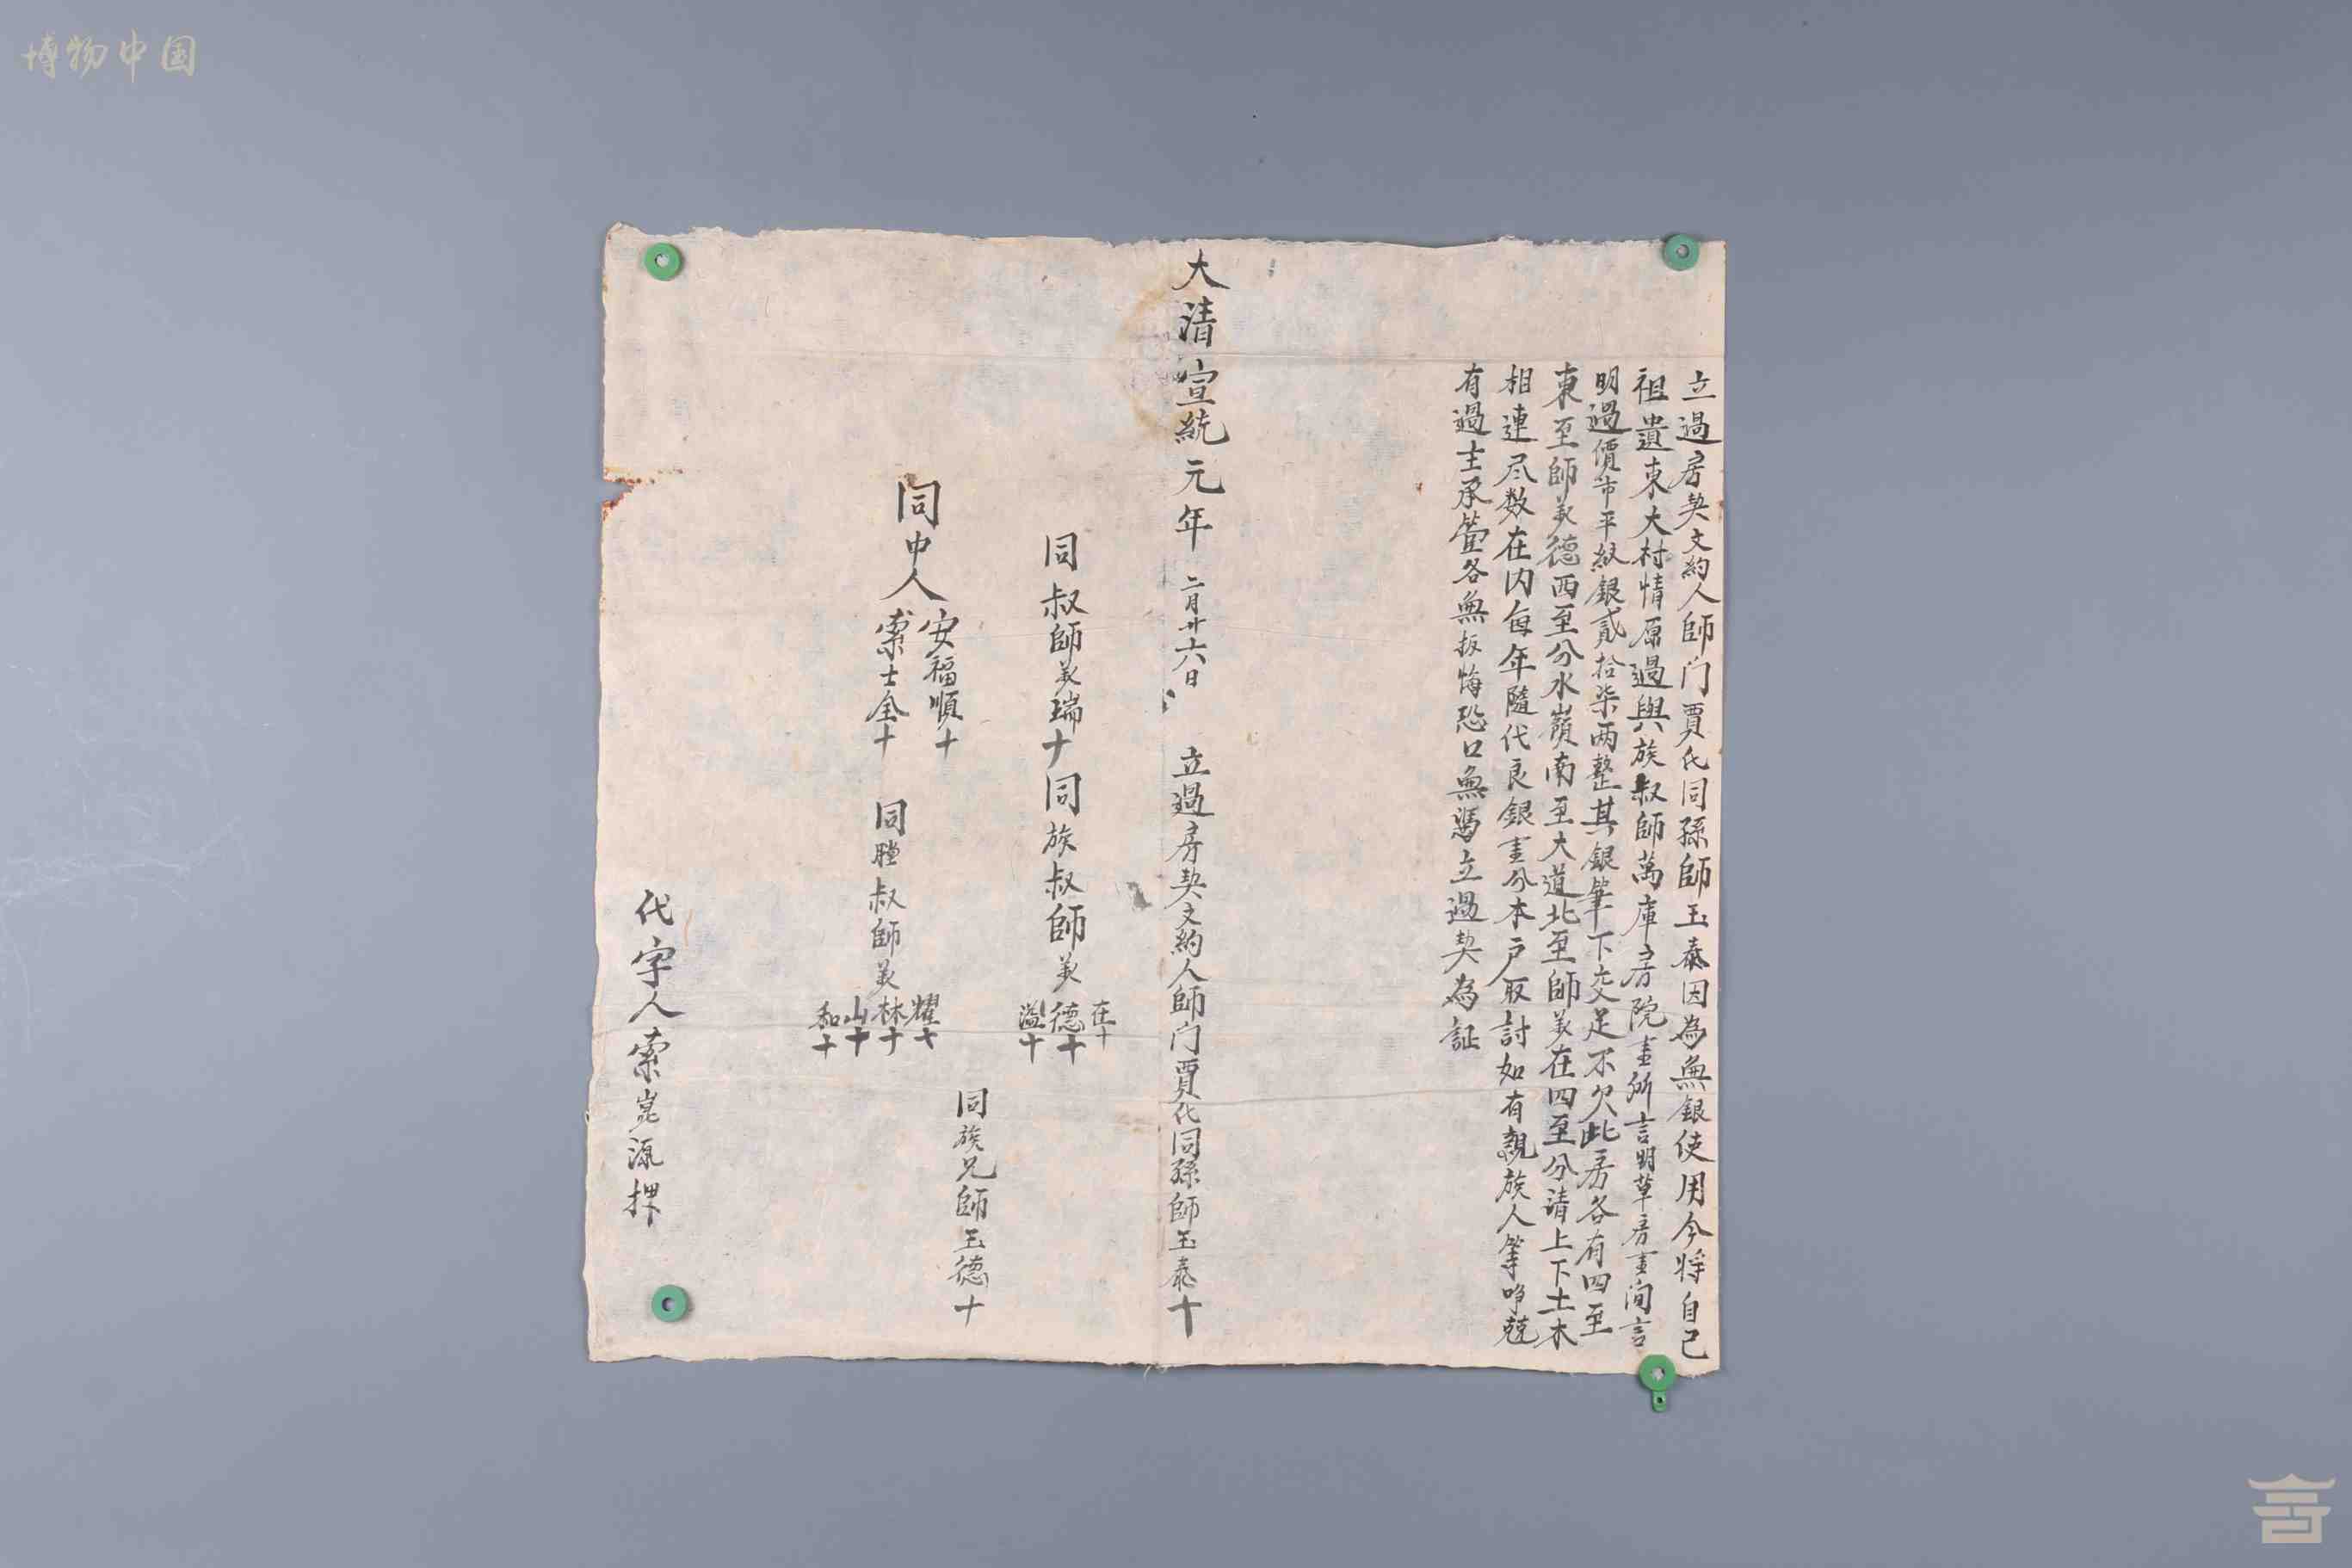 博物中国
立過房契文約人師门賈氏同孫師玉泰因為無銀使用今将自己
祖遺東大村情愿過與族叔師萬庫房院壹所言明草房壹间言
明過價市平紋銀貳拾柒两整其銀筆下交足不欠此房各有四至
東至師美德西至分水嶺南至大道北至師美在四至分清上下土木
相連尽数在内每年隨代良銀壹分本户取討如有親族人等争兢
有過主承管各無扳悔恐口無馮立過契為証
大清宣統元年 二月廿六日 立過房契文約人師门賈氏同孫師玉泰十
同叔師美瑞十 同族叔師美 在十 德十 溢十
同族兄師玉德十
同中人 安福順十 索士全十
同膛叔師美 耀十 林十 山十 和十
代字人索崑源押